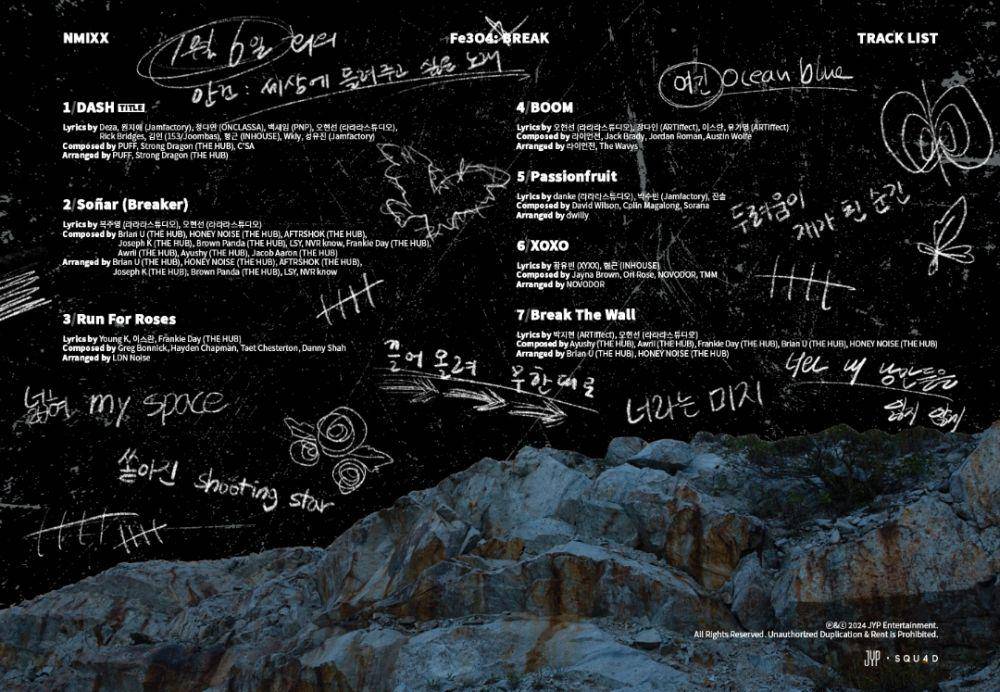 NMIXX
Fe3O4: BREAK
TRACK LIST
1월 6일 회의
안건 : 세상에 들려주고 싶은 노래
여긴 ocean blue
1/DASH TITLE
Lyrics by Deza, 원지애 (Jamfactory), 정다연 (ONCLASSA), 백새임 (PNP), 오현선 (라라라스튜디오),
Rick Bridges, 김인 (153/Joombas), 형근 (INHOUSE), Wkly, 성유진 (Jamfactory)
Composed by PUFF, Strong Dragon (THE HUB), C'SA
Arranged by PUFF, Strong Dragon (THE HUB)
2/Soñar (Breaker)
Lyrics by 목주영 (라라라스튜디오), 오현선 (라라라스튜디오)
Composed by Brian U (THE HUB), HONEY NOISE (THE HUB), AFTRSHOK (THE HUB),
Joseph K (THE HUB), Brown Panda (THE HUB), LSY, NVR know, Frankie Day (THE HUB),
Awrii (THE HUB), Ayushy (THE HUB), Jacob Aaron (THE HUB)
Arranged by Brian U (THE HUB), HONEY NOISE (THE HUB), AFTRSHOK (THE HUB),
Joseph K (THE HUB), Brown Panda (THE HUB), LSY, NVR know
3/Run For Roses
Lyrics by Young K, 이스란, Frankie Day (THE HUB)
Composed by Greg Bonnick, Hayden Chapman, Taet Chesterton, Danny Shah
Arranged by LDN Noise
4/BOOM
Lyrics by 오현선 (라라라스튜디오), 장다인 (ARTiffect), 이스란, 유가영 (ARTiffect)
Composed by 라이언전, Jack Brady, Jordan Roman, Austin Wolfe
Arranged by 라이언전, The Wavys
5/Passionfruit
Lyrics by danke (라라라스튜디오), 박수빈 (Jamfactory), 진솔
Composed by David Wilson, Colin Magalong, Sorana
Arranged by dwilly
두려움이
재가 된 순간
6/XOXO
Lyrics by 황유빈 (XYXX), 형근 (INHOUSE)
Composed by Jayna Brown, Ori Rose, NOVODOR, TMM
Arranged by NOVODOR
7/Break The Wall
Lyrics by 박지현 (ARTiffect), 오현선 (라라라스튜디오)
Composed by Ayushy (THE HUB), Awrii (THE HUB), Frankie Day (THE HUB), Brian U (THE HUB), HONEY NOISE (THE HUB)
Arranged by Brian U (THE HUB), HONEY NOISE (THE HUB)
끌어 올려 무한대로
너와 내 낭만들을
넓혀 my space
너라는 미지
쏟아진 shooting star
℗&© 2024 JYP Entertainment.
All Rights Reserved. Unauthorized Duplication & Rent is Prohibited.
JYP · SQU4D